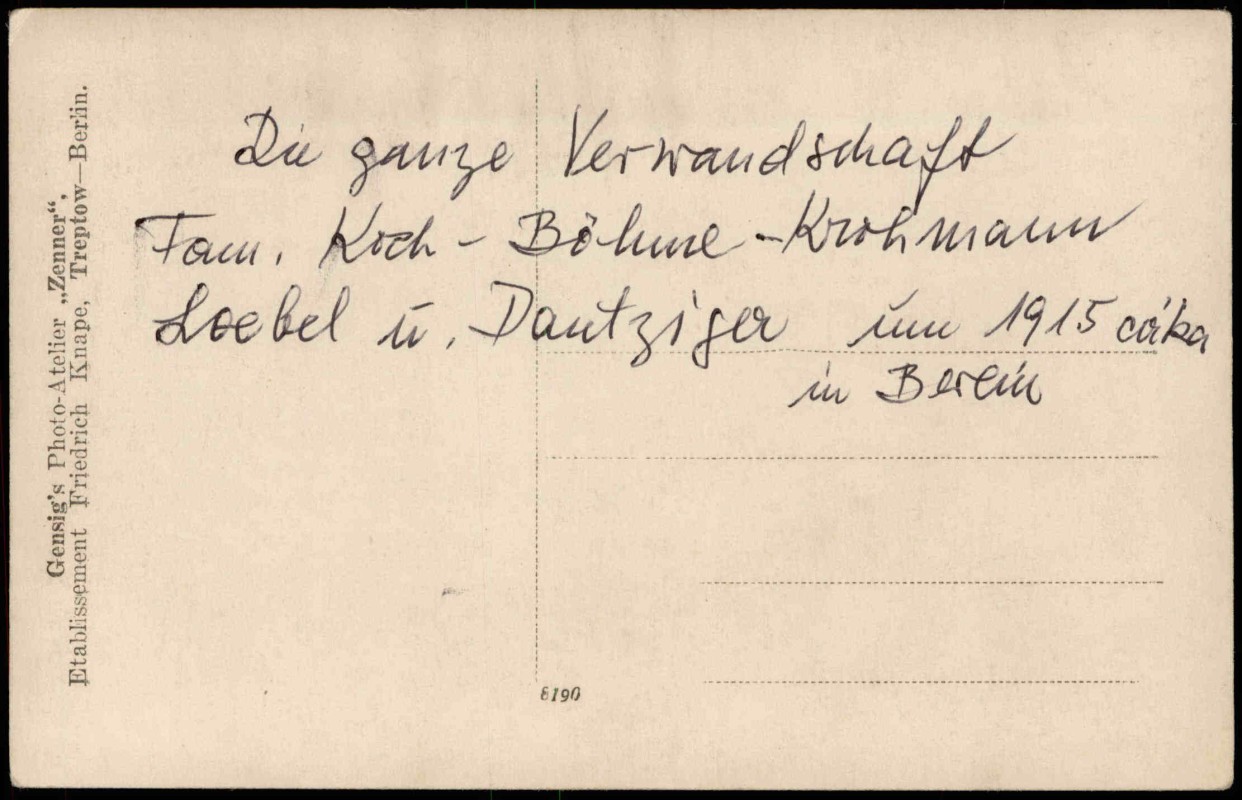 Die ganze Verwandschaft
Fam. Koch - Böhme - Krohmann
Loebel u. Dantziger um 1915 cirka
in Berlin
Gensig's Photo-Atelier „Zenner“,
Etablissement Friedrich Knape, Treptow—Berlin.
8190